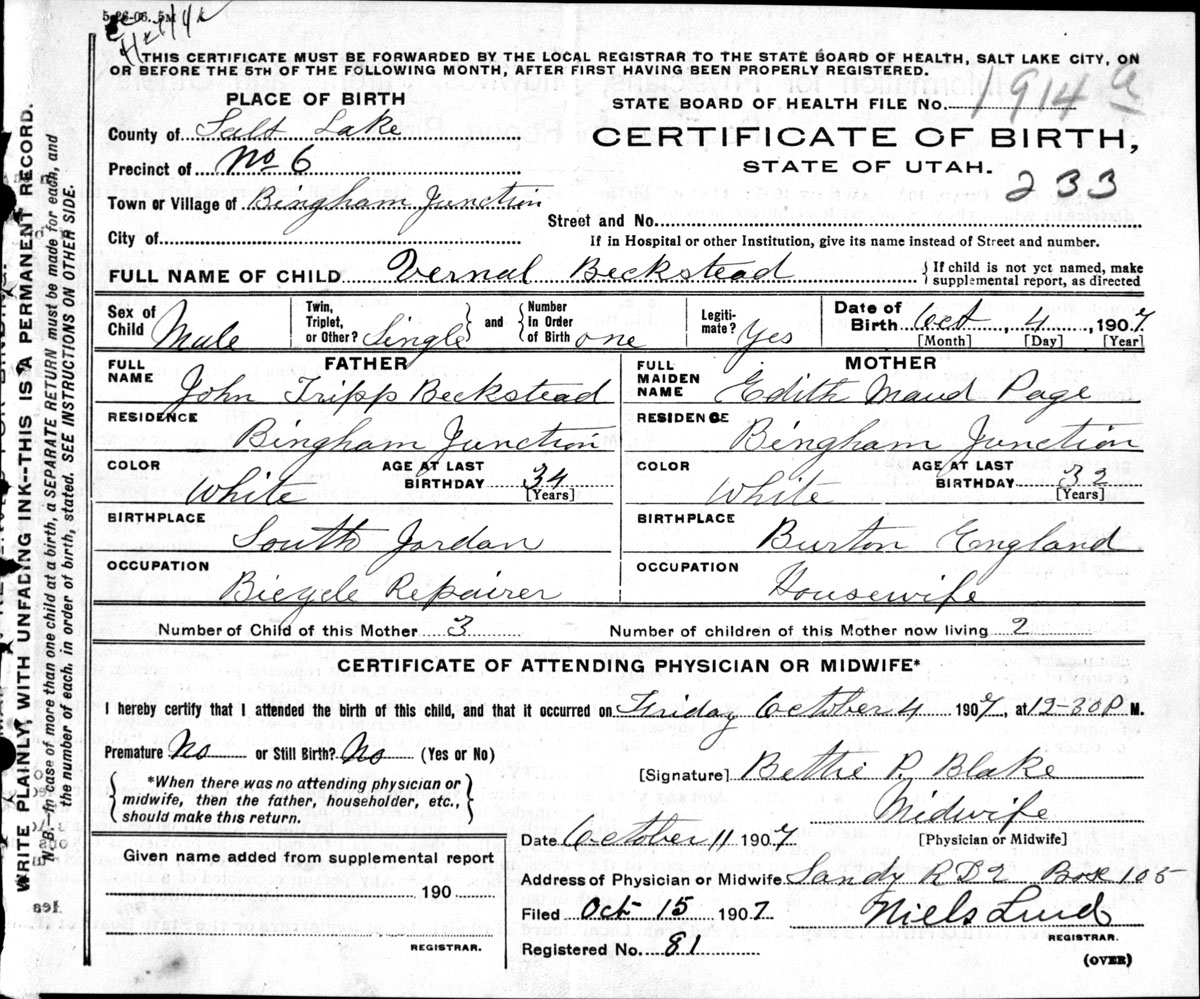 5-26-06. 5M
THIS CERTIFICATE MUST BE FORWARDED BY THE LOCAL REGISTRAR TO THE STATE BOARD OF HEALTH, SALT LAKE CITY, ON
OR BEFORE THE 5TH OF THE FOLLOWING MONTH, AFTER FIRST HAVING BEEN PROPERLY REGISTERED.
PLACE OF BIRTH
STATE BOARD OF HEALTH FILE No. 1914 a
County of Salt Lake
CERTIFICATE OF BIRTH,
Precinct of No 6
STATE OF UTAH.
233
Town or Village of Bingham Junction
Street and No.
City of
If in Hospital or other Institution, give its name instead of Street and number.
FULL NAME OF CHILD Vernal Beckstead
{ If child is not yet named, make
supplemental report, as directed
Sex of Child Male
Twin, Triplet, or Other? Single } and { Number In Order of Birth one
Legiti-mate? Yes
Date of Birth Oct, 4, 1907
[Month] [Day] [Year]
FATHER
FULL NAME John Tripp Beckstead
RESIDENCE Bingham Junction
COLOR White AGE AT LAST BIRTHDAY 34 [Years]
BIRTHPLACE South Jordan
OCCUPATION Bicycle Repairer
MOTHER
FULL MAIDEN NAME Edith Maud Page
RESIDENCE Bingham Junction
COLOR White AGE AT LAST BIRTHDAY 32 [Years]
BIRTHPLACE Burton England
OCCUPATION Housewife
Number of Child of this Mother 3 Number of children of this Mother now living 2
CERTIFICATE OF ATTENDING PHYSICIAN OR MIDWIFE*
I hereby certify that I attended the birth of this child, and that it occurred on Friday October 4 1907, at 12-30 P M.
Premature No or Still Birth? No (Yes or No)
{ *When there was no attending physician or
midwife, then the father, householder, etc.,
should make this return. }
[Signature] Bethie P. Blake
Midwife
[Physician or Midwife]
Date October 11 1907
Given name added from supplemental report
190
REGISTRAR.
Address of Physician or Midwife Sandy R D 2 Box 105
Filed Oct 15 1907 Niels Lind
REGISTRAR.
Registered No. 81
(OVER)
WRITE PLAINLY, WITH UNFADING INK--THIS IS A PERMANENT RECORD.
N. B.--In case of more than one child at a birth, a SEPARATE RETURN must be made for each, and
the number of each, in order of birth, stated. SEE INSTRUCTIONS ON OTHER SIDE.